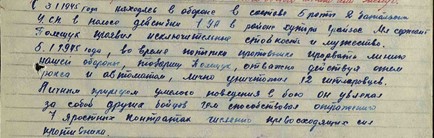 С 3.1.1945 года находясь в обороне в составе 5 роты 2 батальона
в районе хутора мл сержант
Полещук проявил исключительные стойкость и мужество.
5.1.1945 года, во время попытки противника прорвать линию
нашей обороны, товарищ Полещук, отважно действуя огнем
и автоматом, лично уничтожил 12 гитлеровцев.
Личным примером умелого поведения в бою он увлекал
за собой других бойцов чем способствовал отражению
7 яростных контратак численно превосходящих сил
противника.